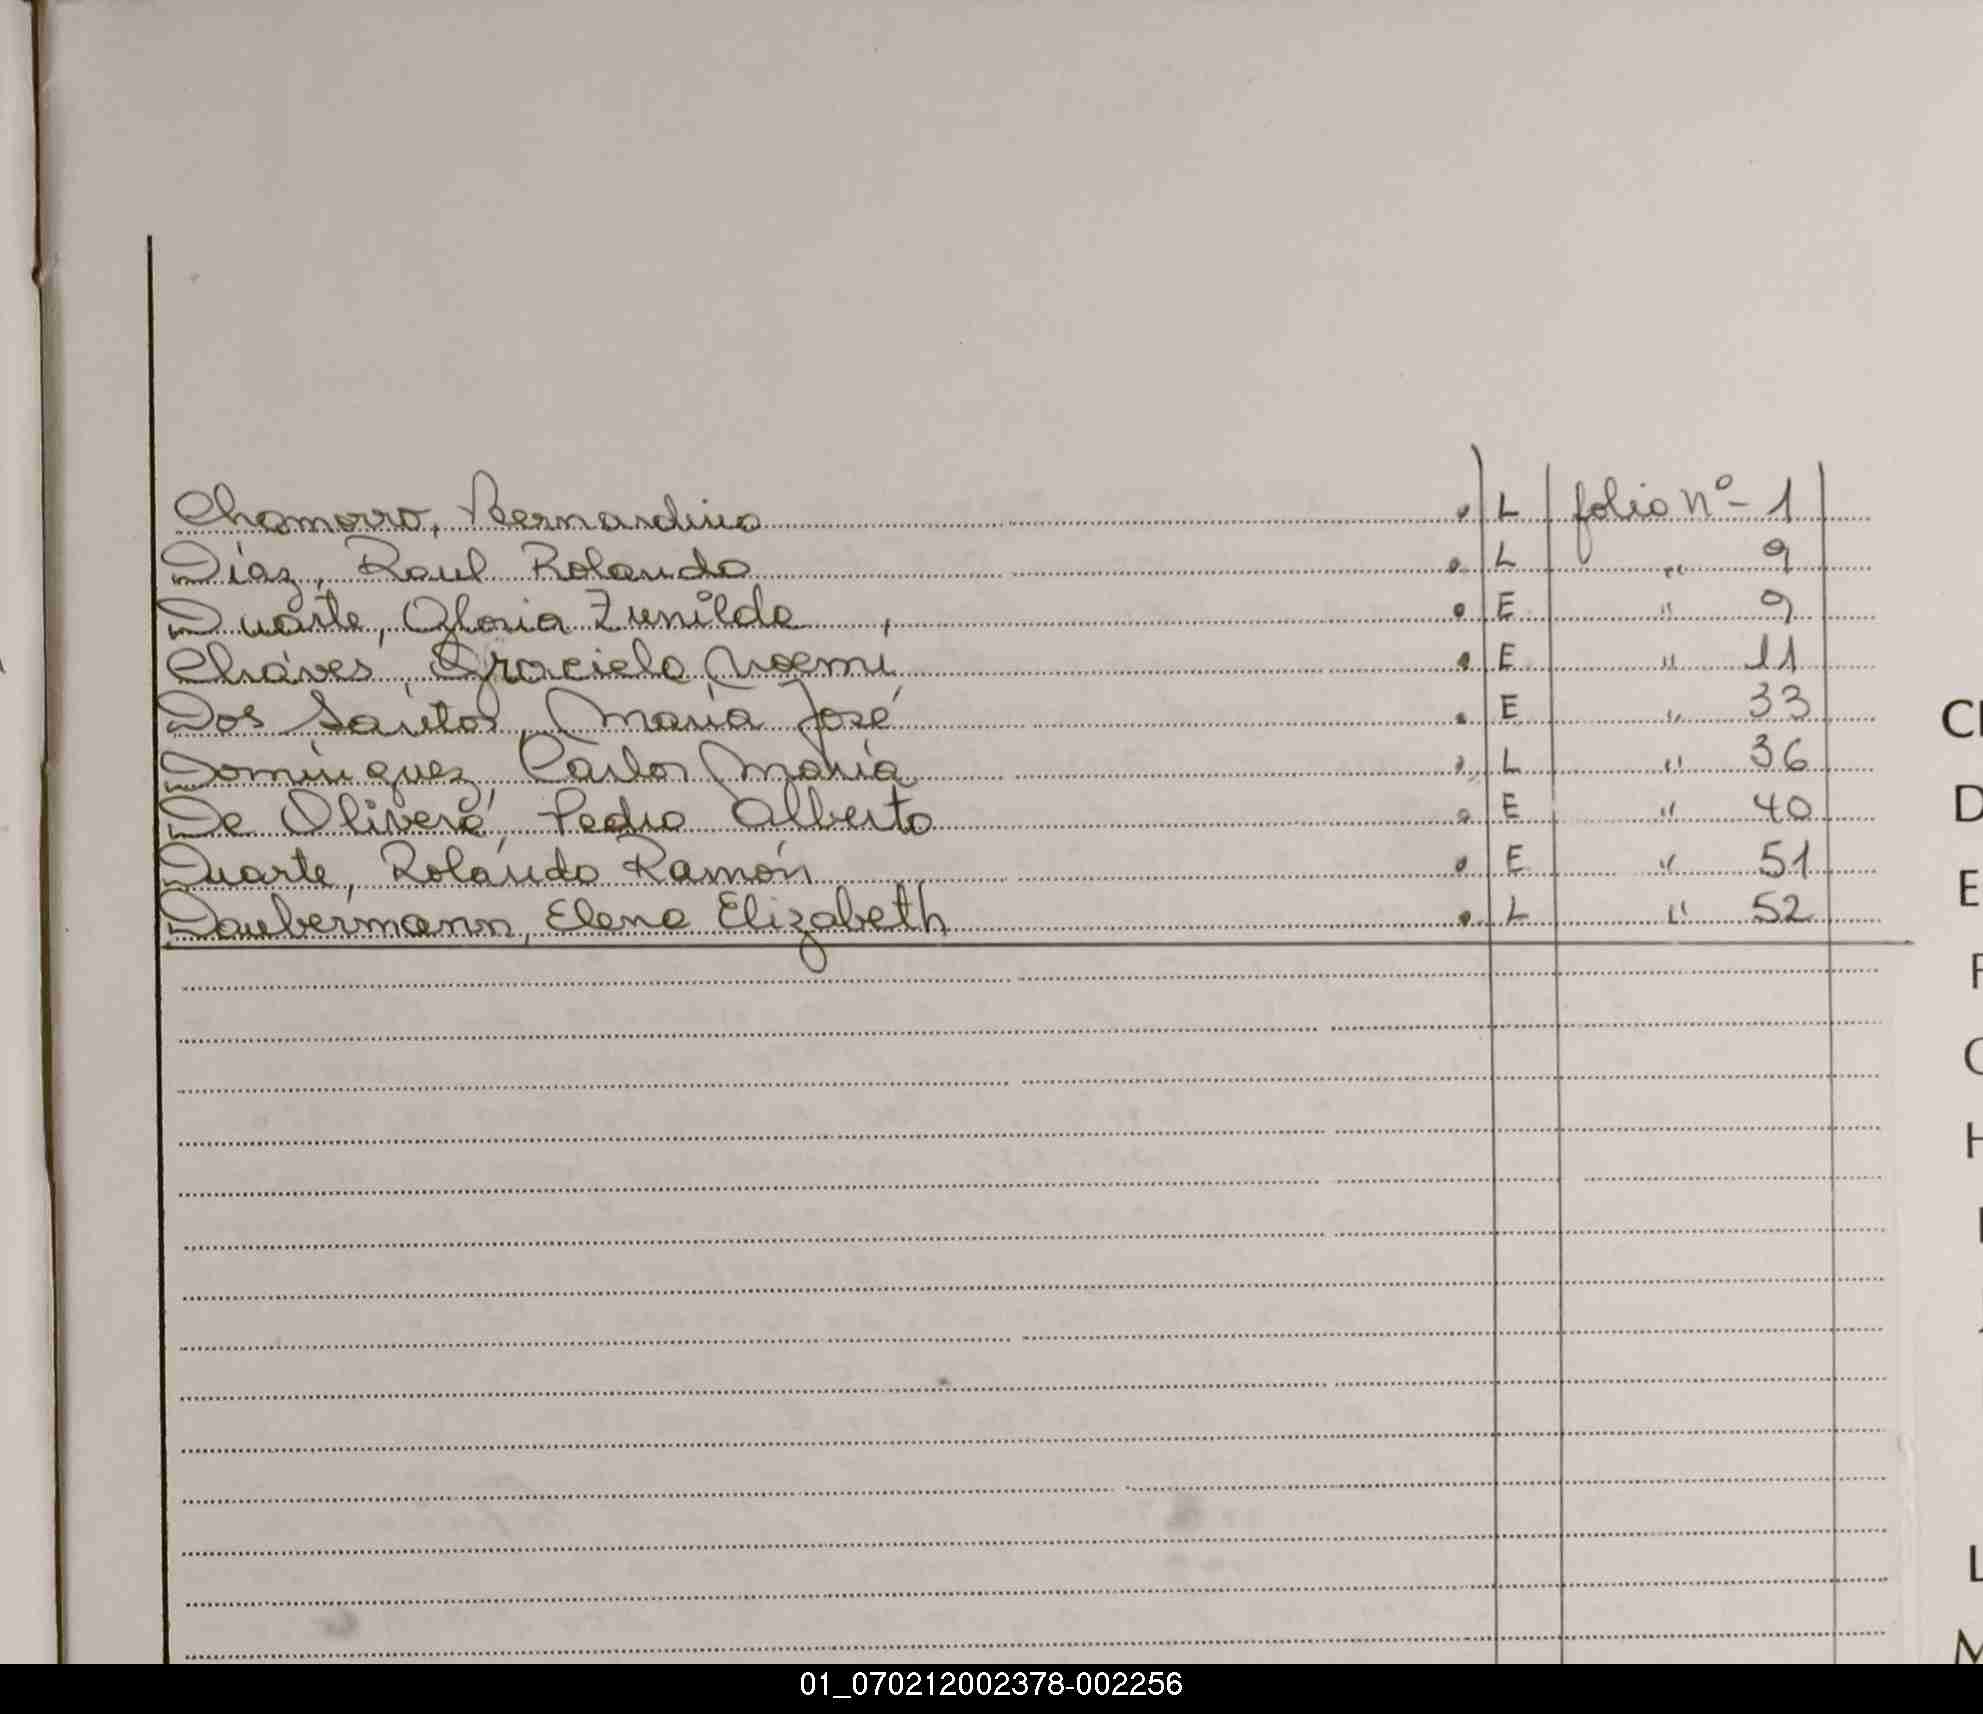 Chamorro, Bernardino . L folio nº - 1
Díaz, Raul Rolando . L " 9
Duarte, Gloria Zunilda , . E " 9
Cháves, Graciela Noemi . E " 11
Dos Santos, María José . E " 33
Domínguez, Carlos María . L " 36
De Olivera, Pedro Alberto . E " 40
Duarte, Rolando Ramón . E " 51
Daubermann, Elena Elizabeth . L " 52
D
E
H
L
M
01_070212002378-002256